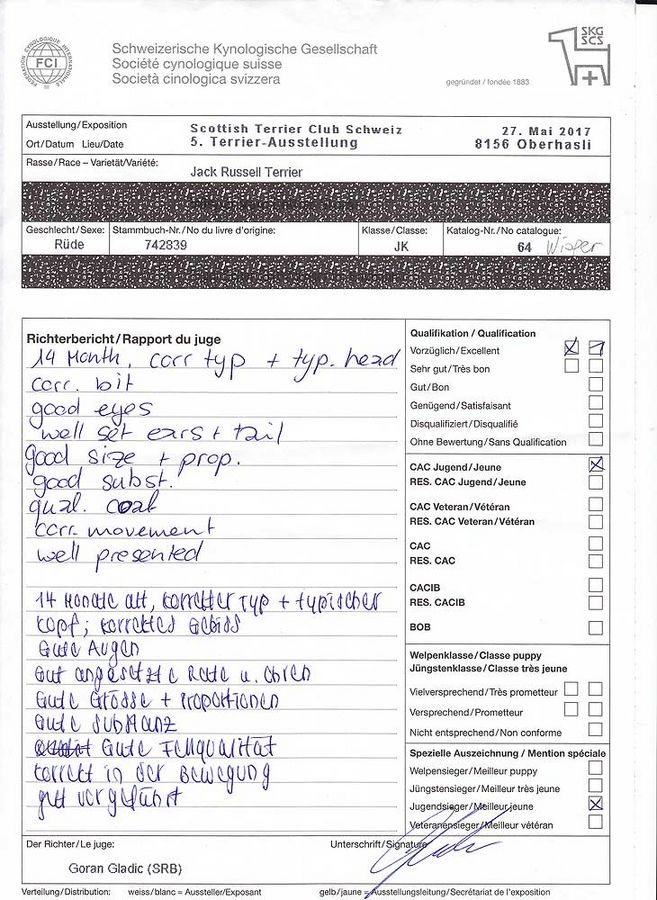 FCI
Schweizerische Kynologische Gesellschaft
Société cynologique suisse
Società cinologica svizzera
gegründet / fondée 1883
SKG
SCS
Ausstellung/Exposition
Scottish Terrier Club Schweiz
27. Mai 2017
Ort/Datum Lieu/Date
5. Terrier-Ausstellung
8156 Oberhasli
Rasse/Race – Varietät/Variété:
Jack Russell Terrier
Geschlecht/Sexe: Stammbuch-Nr./No du livre d'origine: Klasse/Classe: Katalog-Nr./No catalogue:
Rüde 742839 JK 64
Richterbericht/Rapport du juge
14 Month, corr typ + typ. head
corr. bit
good eyes
well set ears + tail
good size + prop.
good subst.
qual. coat
corr. movement
well presented
14 Monate alt, korrekter Typ + typischer
Kopf; korrektes Gebiss
Gute Augen
Gut angesetzte Rute u. Ohren
Gute Grösse + Proportionen
Gute Substanz
Gute Fellqualität
korrekt in der Bewegung
gut vorgeführt
Qualifikation / Qualification
Vorzüglich/Excellent
Sehr gut/Très bon
Gut/Bon
Genügend/Satisfaisant
Disqualifiziert/Disqualifié
Ohne Bewertung/Sans Qualification
CAC Jugend/Jeune
RES. CAC Jugend/Jeune
CAC Veteran/Vétéran
RES. CAC Veteran/Vétéran
CAC
RES. CAC
CACIB
RES. CACIB
BOB
Welpenklasse/Classe puppy
Jüngstenklasse/Classe très jeune
Vielversprechend/Très prometteur
Versprechend/Prometteur
Nicht entsprechend/Non conforme
Spezielle Auszeichnung / Mention spéciale
Welpensieger/Meilleur puppy
Jüngstensieger/Meilleur très jeune
Jugendsieger/Meilleur jeune
Veteranensieger/Meilleur vétéran
Der Richter/Le juge:
Unterschrift/Signature
Goran Gladic (SRB)
Verteilung/Distribution: weiss/blanc = Aussteller/Exposant gelb/jaune = Ausstellungsleitung/Secrétariat de l'exposition